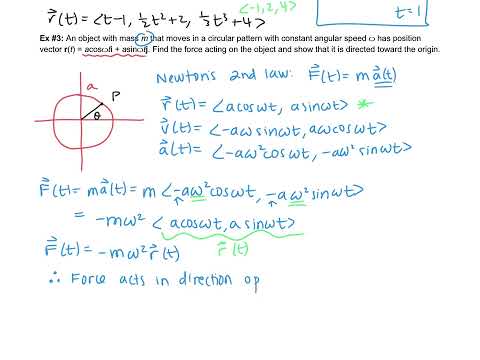 r⃗(t) = <t-1, ½t²+2, ⅓t³+4>
<-1,2,4>
t=1
Ex #3: An object with mass m that moves in a circular pattern with constant angular speed ω has position
vector r(t) = acosωti + asinωtj. Find the force acting on the object and show that it is directed toward the origin.
Newton's 2nd law: F⃗(t) = m a⃗(t)
a
P
θ
r⃗(t) = <acosωt, asinωt> *
v⃗(t) = <-aωsinωt, aωcosωt>
a⃗(t) = <-aω²cosωt, -aω²sinωt>
F⃗(t) = ma⃗(t) = m <-aω²cosωt, -aω²sinωt>
= -mω² <acosωt, asinωt>
F⃗(t) = -mω² r⃗(t)
r⃗(t)
∴ Force acts in direction op